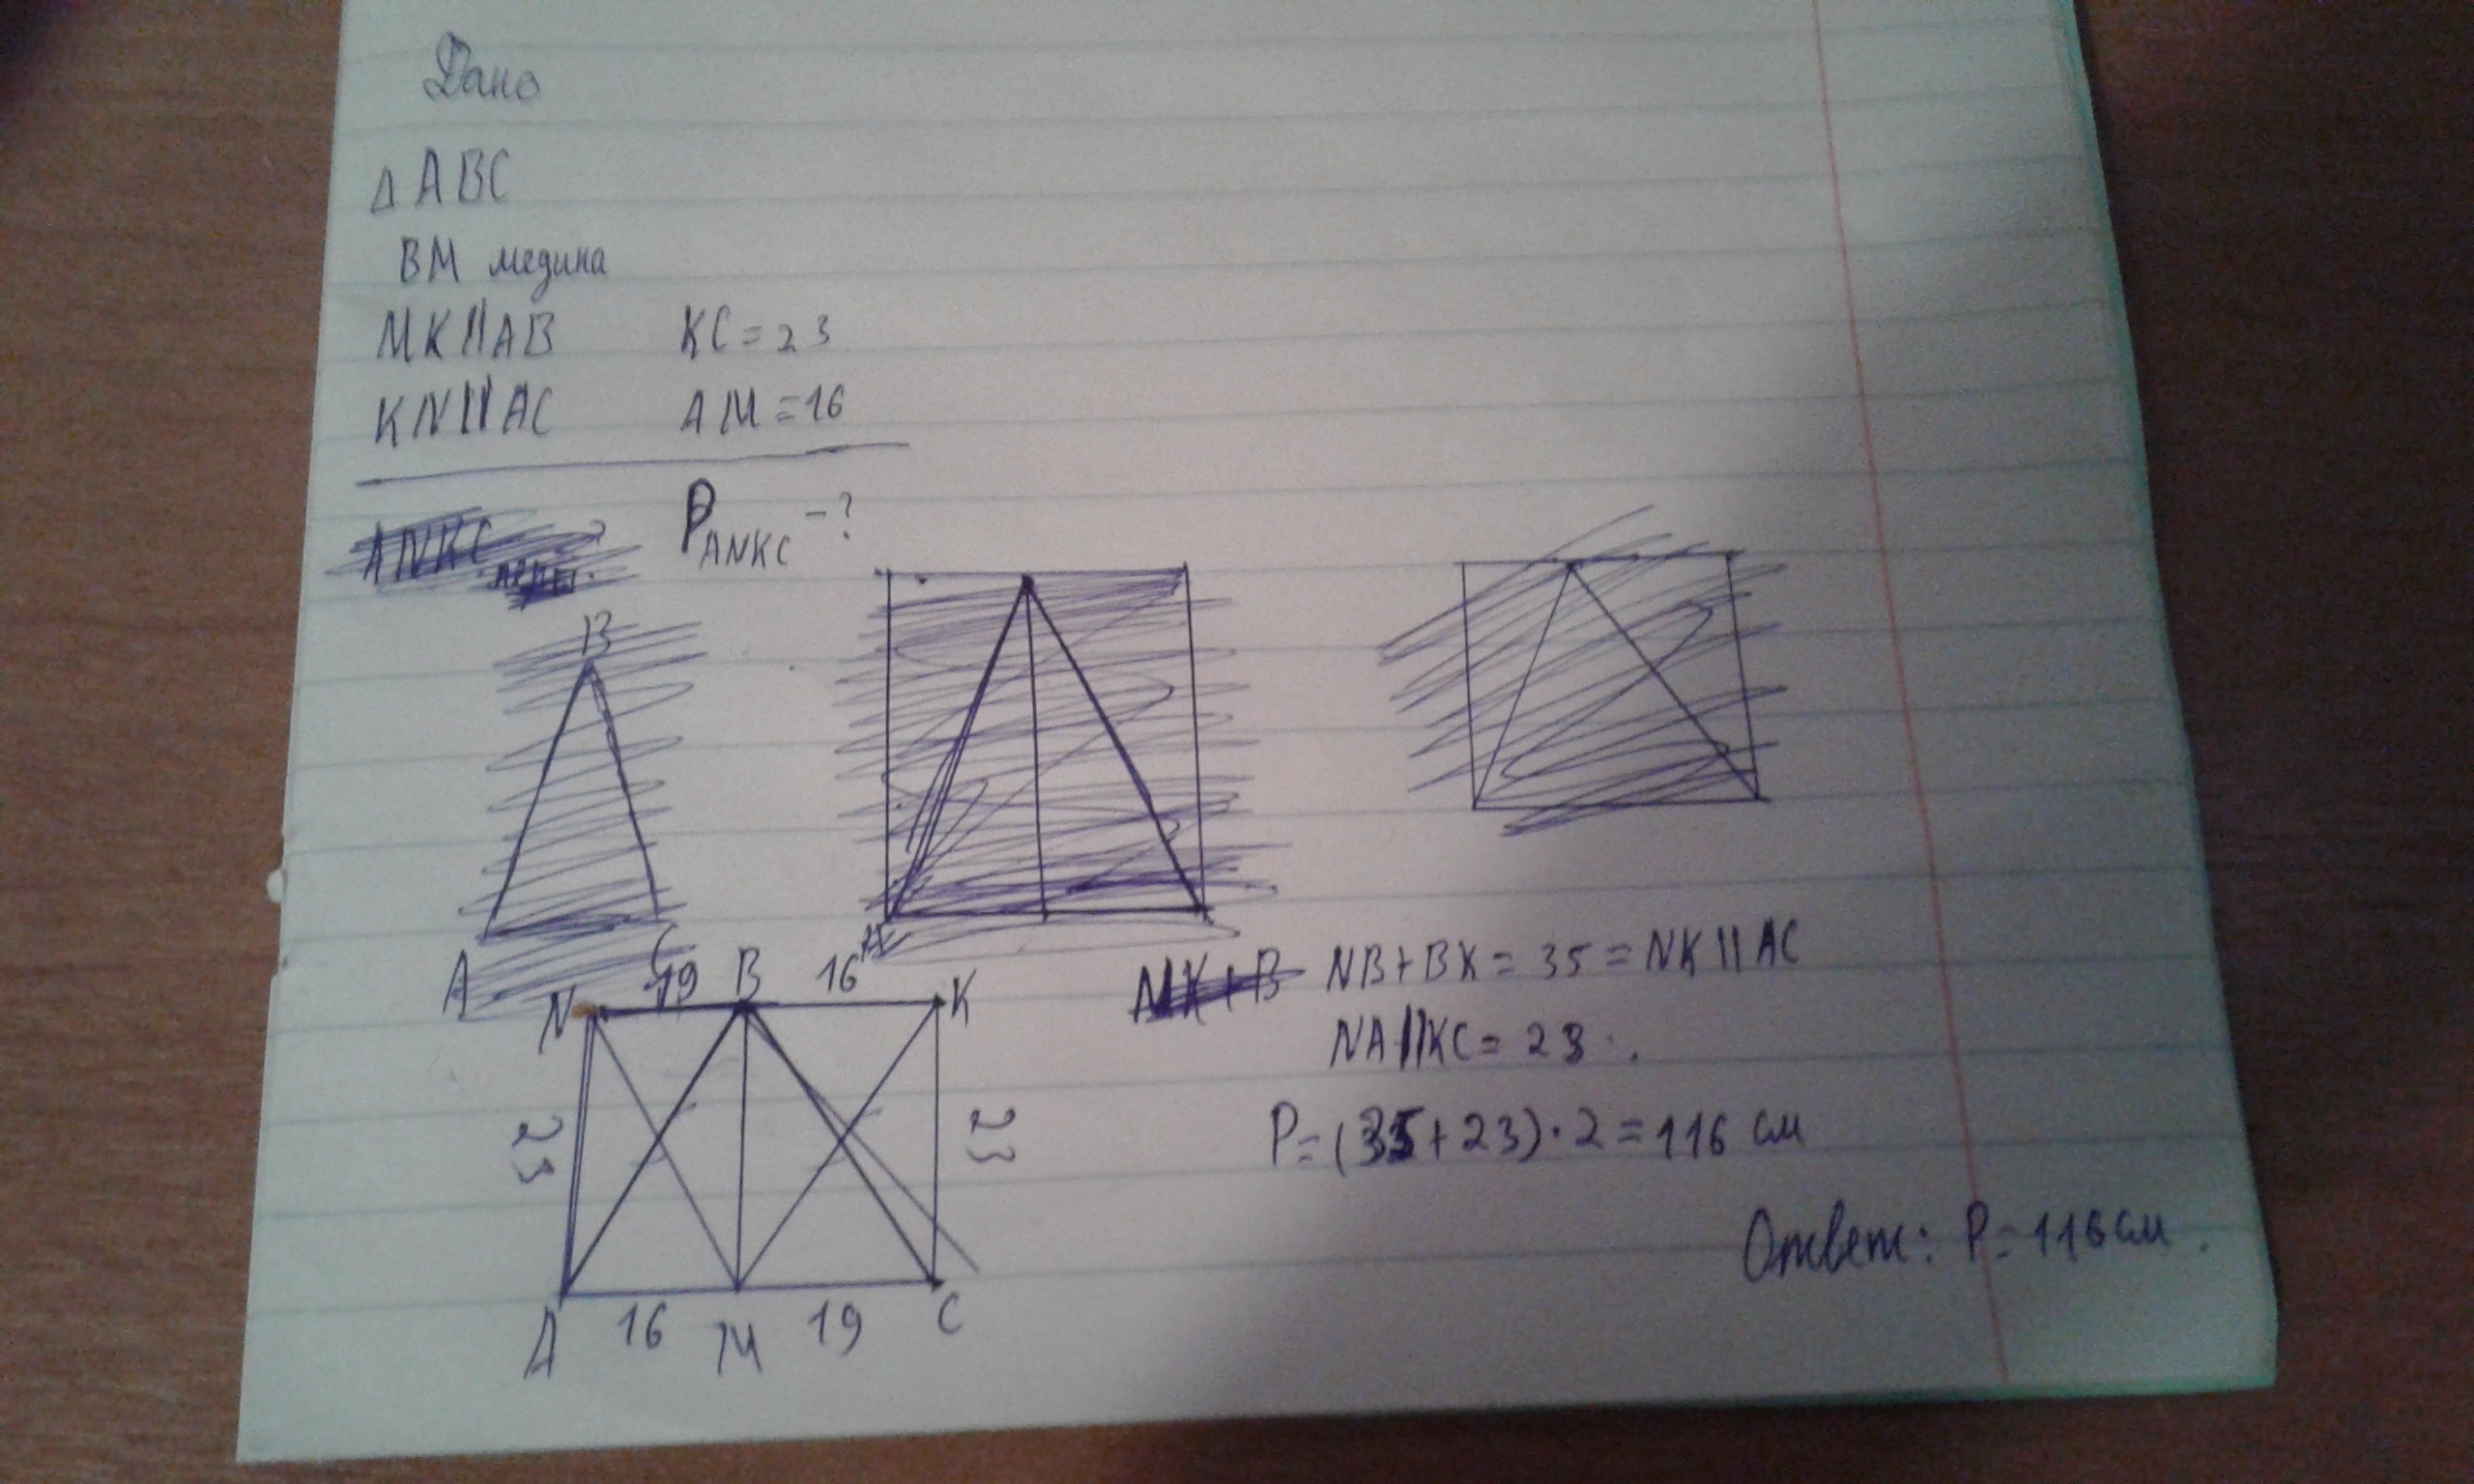 Дано
△ ABC
BM медина
MK||AB KC=23
KN||AC AM=16
ANKC
P ANKC -?
B
A C
N 19 B 16 K
23 23
A 16 M 19 C
NB+BK=35=NK||AC
NA||KC=23.
P=(35+23)·2=116 см
Ответ: P=116см.